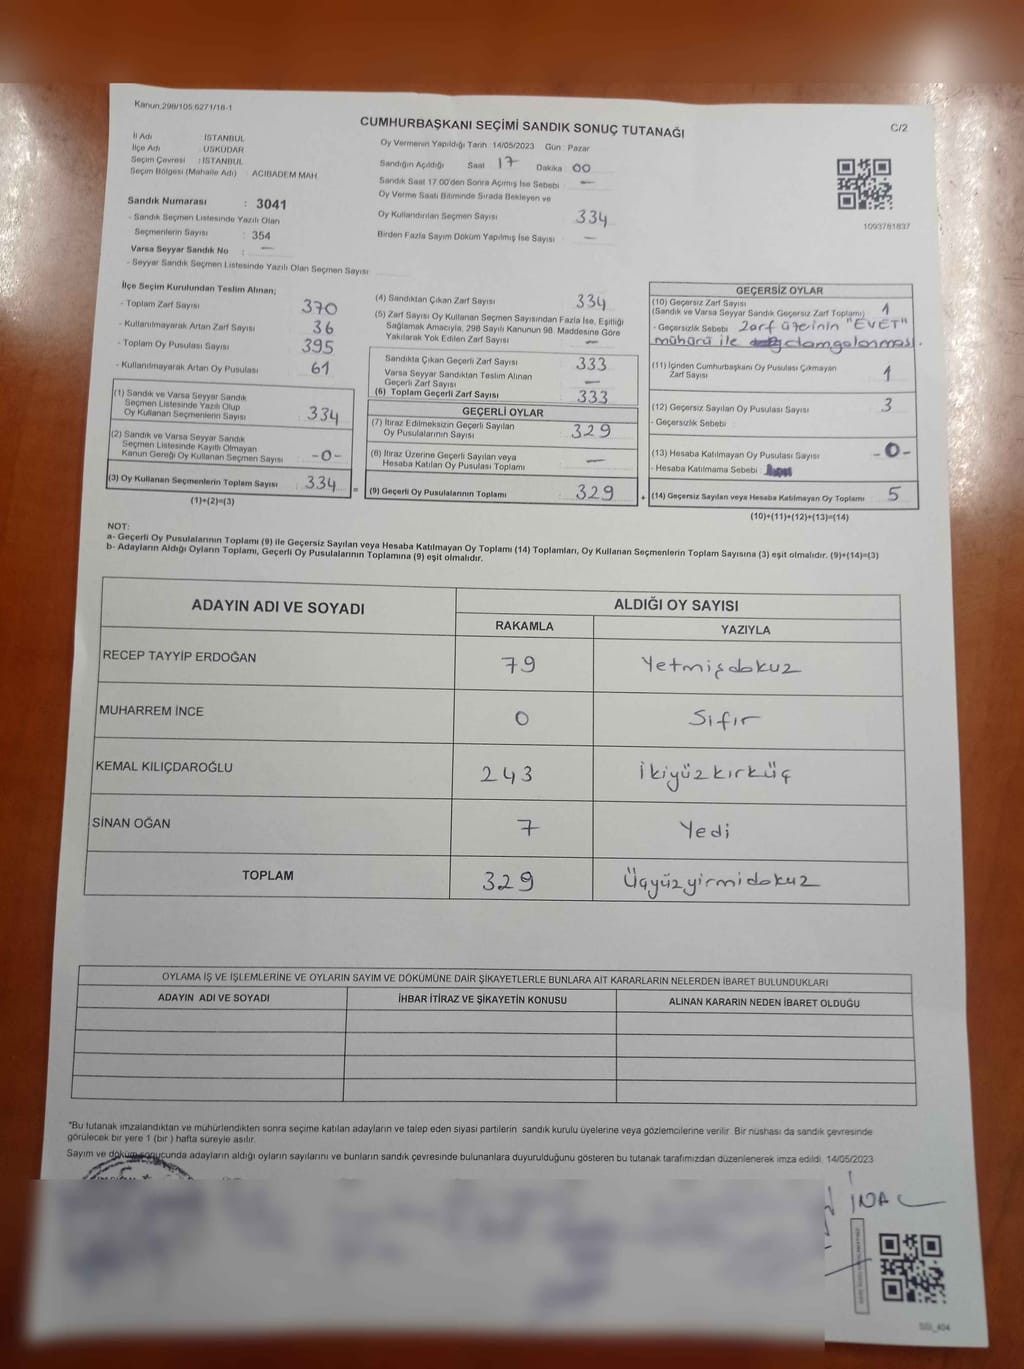 Kanun.298/105,6271/18-1
CUMHURBAŞKANI SEÇİMİ SANDIK SONUÇ TUTANAĞI
C/2
İl Adı : İSTANBUL
İlçe Adı : ÜSKÜDAR
Seçim Çevresi : İSTANBUL
Seçim Bölgesi (Mahalle Adı) : ACIBADEM MAH.
Sandık Numarası : 3041
- Sandık Seçmen Listesinde Yazılı Olan
Seçmenlerin Sayısı : 354
Varsa Seyyar Sandık No : —
- Seyyar Sandık Seçmen Listesinde Yazılı Olan Seçmen Sayısı
Oy Vermenin Yapıldığı Tarih: 14/05/2023 Gün : Pazar
Sandığın Açıldığı Saat 17 Dakika 00
Sandık Saat 17.00'den Sonra Açımış İse Sebebi : —
Oy Verme Saati Bitiminde Sırada Bekleyen ve
Oy Kullandırılan Seçmen Sayısı 334
Birden Fazla Sayım Döküm Yapılmış İse Sayısı —
1093781837
İlçe Seçim Kurulundan Teslim Alınan;
- Toplam Zarf Sayısı 370
- Kullanılmayarak Artan Zarf Sayısı 36
- Toplam Oy Pusulası Sayısı 395
- Kullanılmayarak Artan Oy Pusulası 61
(1) Sandık ve Varsa Seyyar Sandık
Seçmen Listesinde Yazılı Olup
Oy Kullanan Seçmenlerin Sayısı 334
(2) Sandık ve Varsa Seyyar Sandık
Seçmen Listesinde Kayıtlı Olmayan
Kanun Gereği Oy Kullanan Seçmen Sayısı -0-
(3) Oy Kullanan Seçmenlerin Toplam Sayısı 334 =
(1)+(2)=(3)
(4) Sandıktan Çıkan Zarf Sayısı 334
(5) Zarf Sayısı Oy Kullanan Seçmen Sayısından Fazla İse, Eşitliği
Sağlamak Amacıyla, 298 Sayılı Kanunun 98. Maddesine Göre
Yakılarak Yok Edilen Zarf Sayısı —
Sandıkta Çıkan Geçerli Zarf Sayısı 333
Varsa Seyyar Sandıktan Teslim Alınan
Geçerli Zarf Sayısı —
(6) Toplam Geçerli Zarf Sayısı 333
GEÇERLİ OYLAR
(7) İtiraz Edilmeksizin Geçerli Sayılan
Oy Pusulalarının Sayısı 329
(8) İtiraz Üzerine Geçerli Sayılan veya
Hesaba Katılan Oy Pusulası Toplamı —
(9) Geçerli Oy Pusulalarının Toplamı 329 +
GEÇERSİZ OYLAR
(10) Geçersiz Zarf Sayısı
(Sandık ve Varsa Seyyar Sandık Geçersiz Zarf Toplamı) 1
- Geçersizlik Sebebi : Zarf üzerinin "EVET"
mühürü ile damgalanması.
(11) İçinden Cumhurbaşkanı Oy Pusulası Çıkmayan
Zarf Sayısı 1
(12) Geçersiz Sayılan Oy Pusulası Sayısı 3
- Geçersizlik Sebebi :
(13) Hesaba Katılmayan Oy Pusulası Sayısı -0-
- Hesaba Katılmama Sebebi :
(14) Geçersiz Sayılan veya Hesaba Katılmayan Oy Toplamı 5
(10)+(11)+(12)+(13)=(14)
NOT:
a- Geçerli Oy Pusulalarının Toplamı (9) ile Geçersiz Sayılan veya Hesaba Katılmayan Oy Toplamı (14) Toplamları, Oy Kullanan Seçmenlerin Toplam Sayısına (3) eşit olmalıdır. (9)+(14)=(3)
b- Adayların Aldığı Oyların Toplamı, Geçerli Oy Pusulalarının Toplamına (9) eşit olmalıdır.
ADAYIN ADI VE SOYADI ALDIĞI OY SAYISI
RAKAMLA YAZIYLA
RECEP TAYYİP ERDOĞAN 79 Yetmişdokuz
MUHARREM İNCE 0 Sıfır
KEMAL KILIÇDAROĞLU 243 İkiyüzkırküç
SİNAN OĞAN 7 Yedi
TOPLAM 329 Üçyüzyirmidokuz
OYLAMA İŞ VE İŞLEMLERİNE VE OYLARIN SAYIM VE DÖKÜMÜNE DAİR ŞİKAYETLERLE BUNLARA AİT KARARLARIN NELERDEN İBARET BULUNDUKLARI
ADAYIN ADI VE SOYADI İHBAR İTİRAZ VE ŞİKAYETİN KONUSU ALINAN KARARIN NEDEN İBARET OLDUĞU
*Bu tutanak imzalandıktan ve mühürlendikten sonra seçime katılan adayların ve talep eden siyasi partilerin sandık kurulu üyelerine veya gözlemcilerine verilir. Bir nüshası da sandık çevresinde
görülecek bir yere 1 (bir) hafta süreyle asılır.
Sayım ve döküm sonucunda adayların aldığı oyların sayılarını ve bunların sandık çevresinde bulunanlara duyurulduğunu gösteren bu tutanak tarafımızdan düzenlenerek imza edildi. 14/05/2023